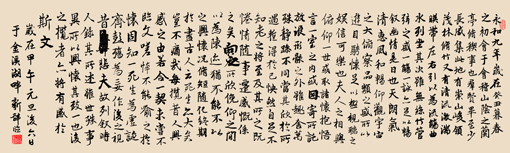 永和九年歲在癸丑暮春
之初會于會稽山陰之蘭
亭脩禊事也羣賢畢至少
長咸集此地有崇山峻領
茂林脩竹又有清流激湍
暎帶左右引以為流觴曲
水列坐其次雖無絲竹管
弦之盛一觴一詠亦足以暢
叙幽情是日也天朗氣
清惠風和暢仰觀宇宙
之大俯察品類之盛所以
遊目騁懷足以極視聽之
娛信可樂也夫人之相與
俯仰一世或取諸懷抱悟
言一室之內或因寄所託
放浪形骸之外雖趣舍萬
殊靜躁不同當其欣於所
遇暫得於己怏然自足不
知老之將至及其所之既
惓情隨事遷感慨係
之矣向之所欣俛仰之間
以為陳迹猶不能不以
之興懷況脩短隨化終期
於盡古人云死生亦大矣
豈不痛哉每攬昔人興
感之由若合一契未嘗不
臨文嗟悼不能喻之於
懷固知一死生為虛誕
齊彭殤為妄作後之視
昔悲夫故列叙時
人錄其所述雖世殊事
異所以興懷其致一也後
之攬者亦將有感於
斯文
歲在甲午元旦後六日
于金溪湖畔